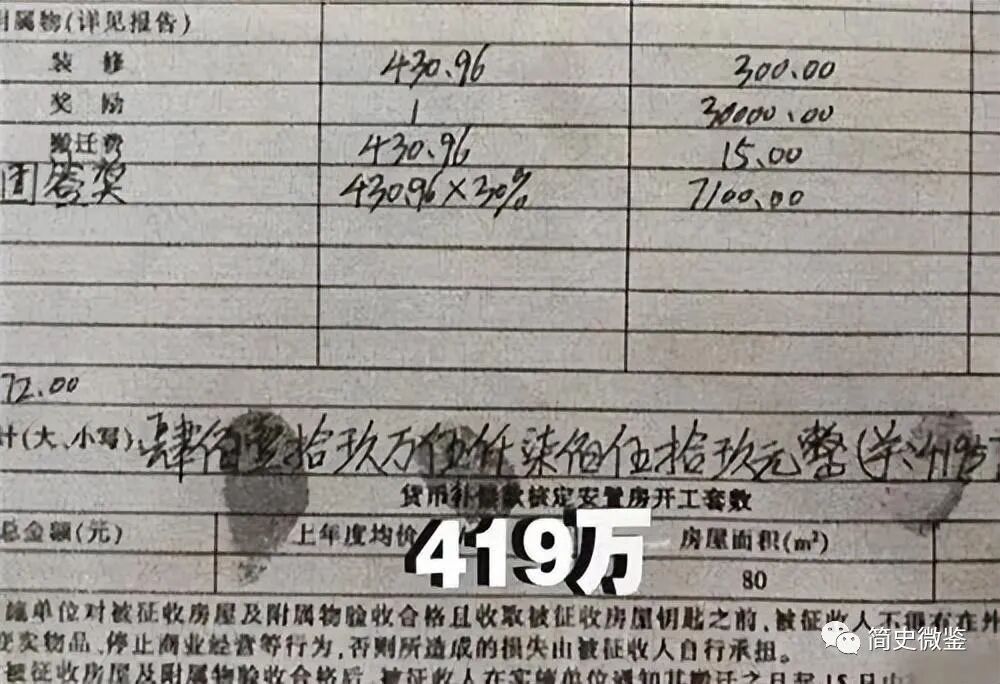 附属物(详见报告)
装 修 430.96 300.00
奖 励 1 30000.00
搬迁费 430.96 15.00
团签奖 430.96×30% 7100.00
72.00
计(大、小写): 肆佰壹拾玖万伍仟柒佰伍拾玖元整(¥:4195
货币补偿款核定安置房开工套数
总金额(元) 上年度均价 房屋面积(m²)
419万
80
施单位对被征收房屋及附属物验收合格且收取被征收房屋钥匙之前,被征收人不得存在外
变实物品、停止商业经营等行为,否则所造成的损失由被征收人自行承担。
被征收房屋及附属物验收合格后,被征收人在实施单位通知其搬迁之日起15日内
简史微鉴